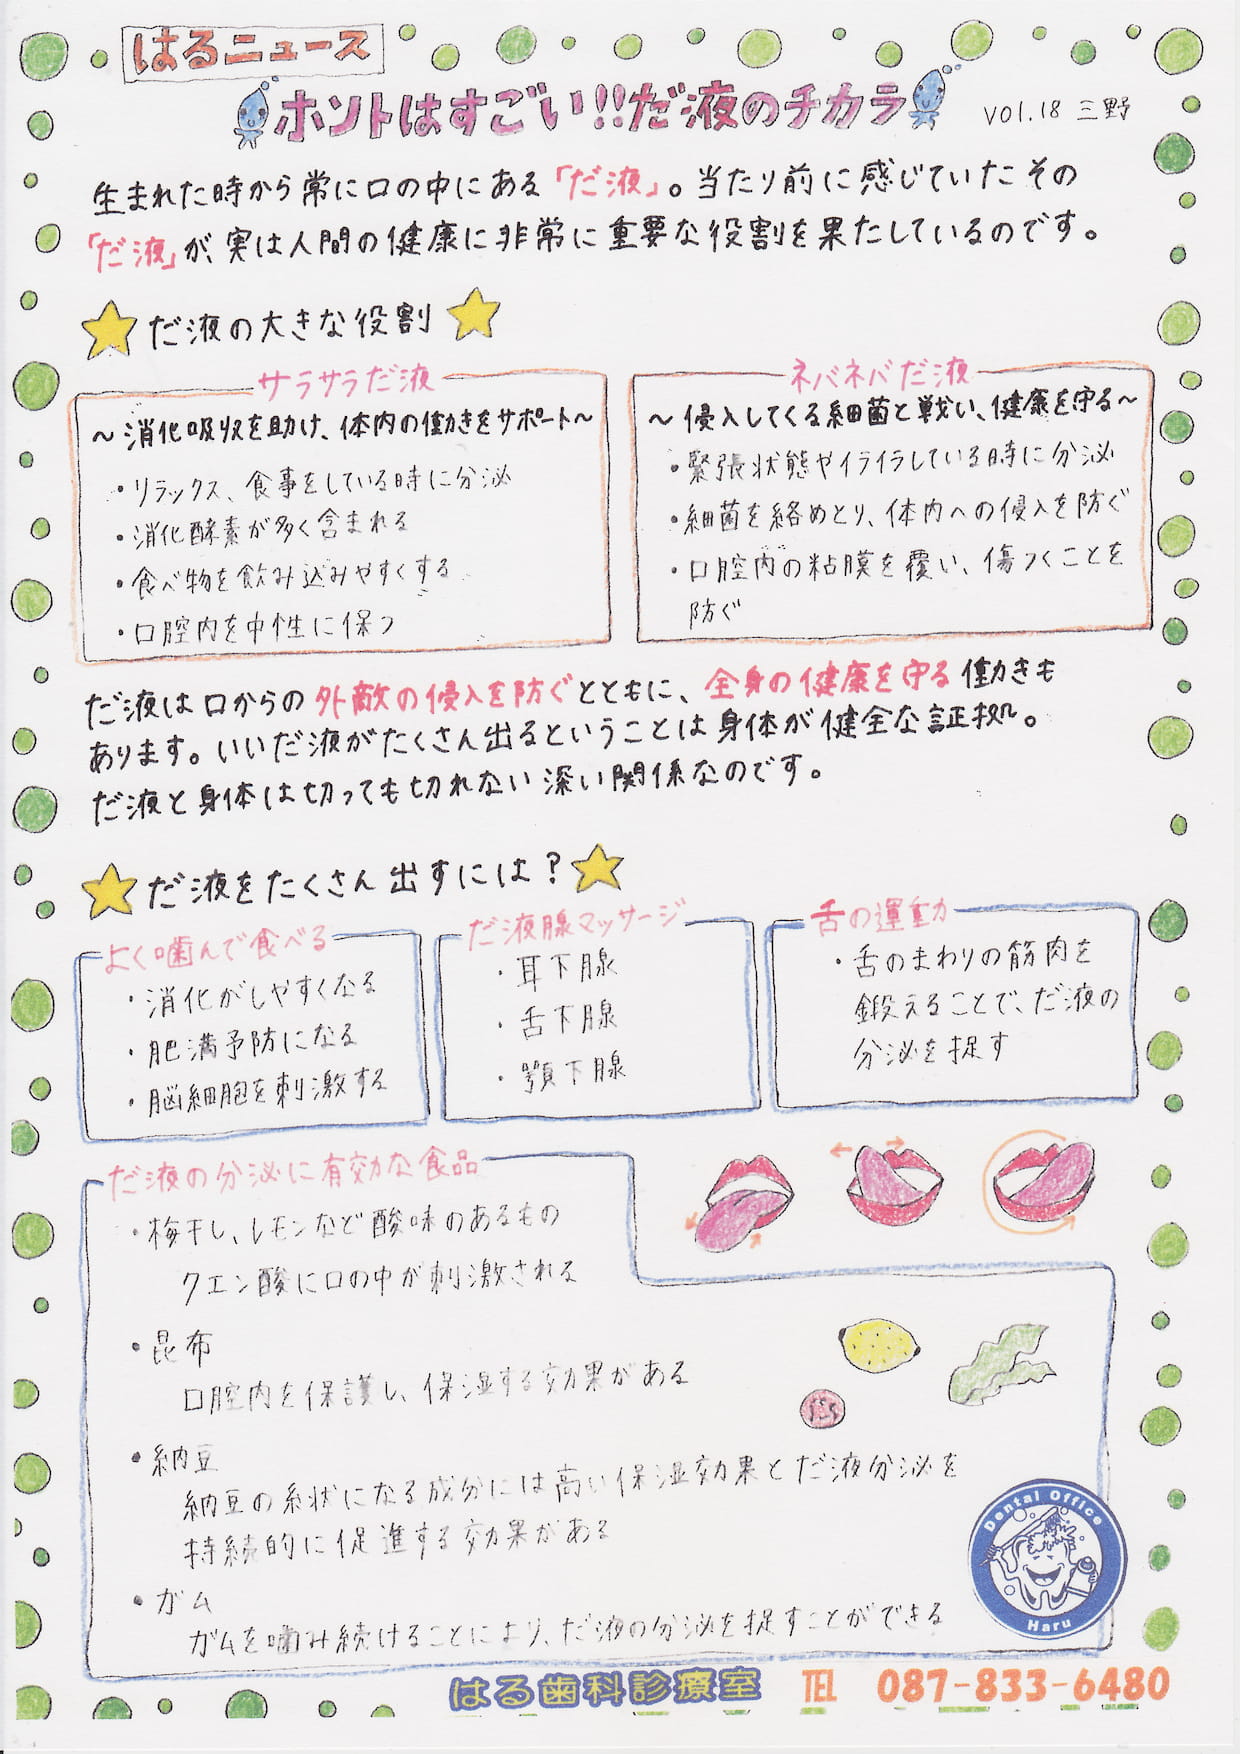 はるニュース
ホントはすごい!!だ液のチカラ
VOl.18 三野
生まれた時から常に口の中にある「だ液」。当たり前に感じていたその
「だ液」が、実は人間の健康に非常に重要な役割を果たしているのです。
だ液の大きな役割
サラサラだ液
～消化吸収を助け、体内の働きをサポート～
・リラックス、食事をしている時に分泌
・消化酵素が多く含まれる
・食べ物を飲み込みやすくする
・口腔内を中性に保つ
ネバネバだ液
～侵入してくる細菌と戦い、健康を守る～
・緊張状態やイライラしている時に分泌
・細菌を絡めとり、体内への侵入を防ぐ
・口腔内の粘膜を覆い、傷つくことを
防ぐ
だ液は口からの外敵の侵入を防ぐとともに、全身の健康を守る働きも
あります。いいだ液がたくさん出るということは身体が健全な証拠。
だ液と身体は切っても切れない深い関係なのです。
だ液をたくさん出すには？
よく噛んで食べる
・消化がしやすくなる
・肥満予防になる
・脳細胞を刺激する
だ液腺マッサージ
・耳下腺
・舌下腺
・顎下腺
舌の運動
・舌のまわりの筋肉を
鍛えることで、だ液の
分泌を捉す
だ液の分泌に有効な食品
・梅干し、レモンなど酸味のあるもの
クエン酸に口の中が刺激される
・昆布
口腔内を保護し、保湿する効果がある
・納豆
納豆の糸状になる成分には高い保湿効果とだ液分泌を
持続的に促進する効果がある
・ガム
ガムを噛み続けることにより、だ液の分泌を捉すことができる
Dental Office
Haru
はる歯科診療室 TEL 087-833-6480